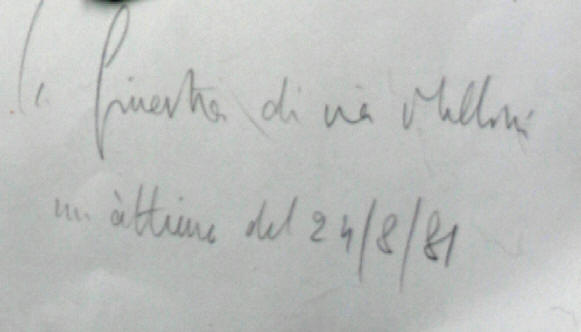 finestra di via Melloni
un àttimo del 24/8/81